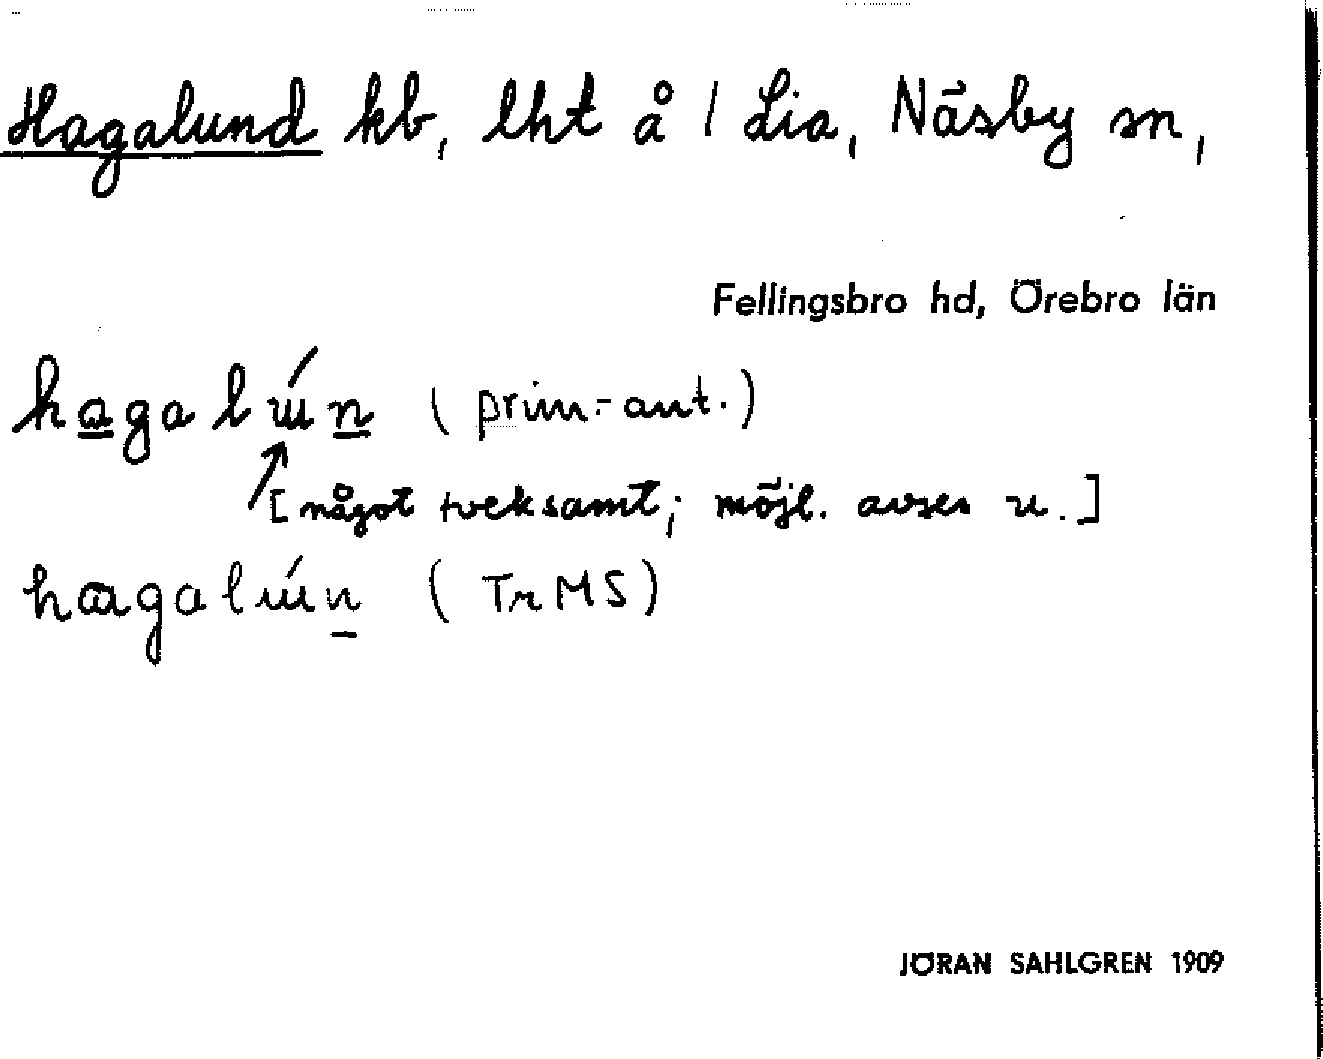 Hagalund kb, lht å 1 Lia, Näsby sn,
Fellingsbro hd, Örebro län
hagalɯ́n (prim.-ant.)
[något tveksamt; möjl. avses u.]
hagalɯ́n (TrMS)
JÖRAN SAHLGREN 1909